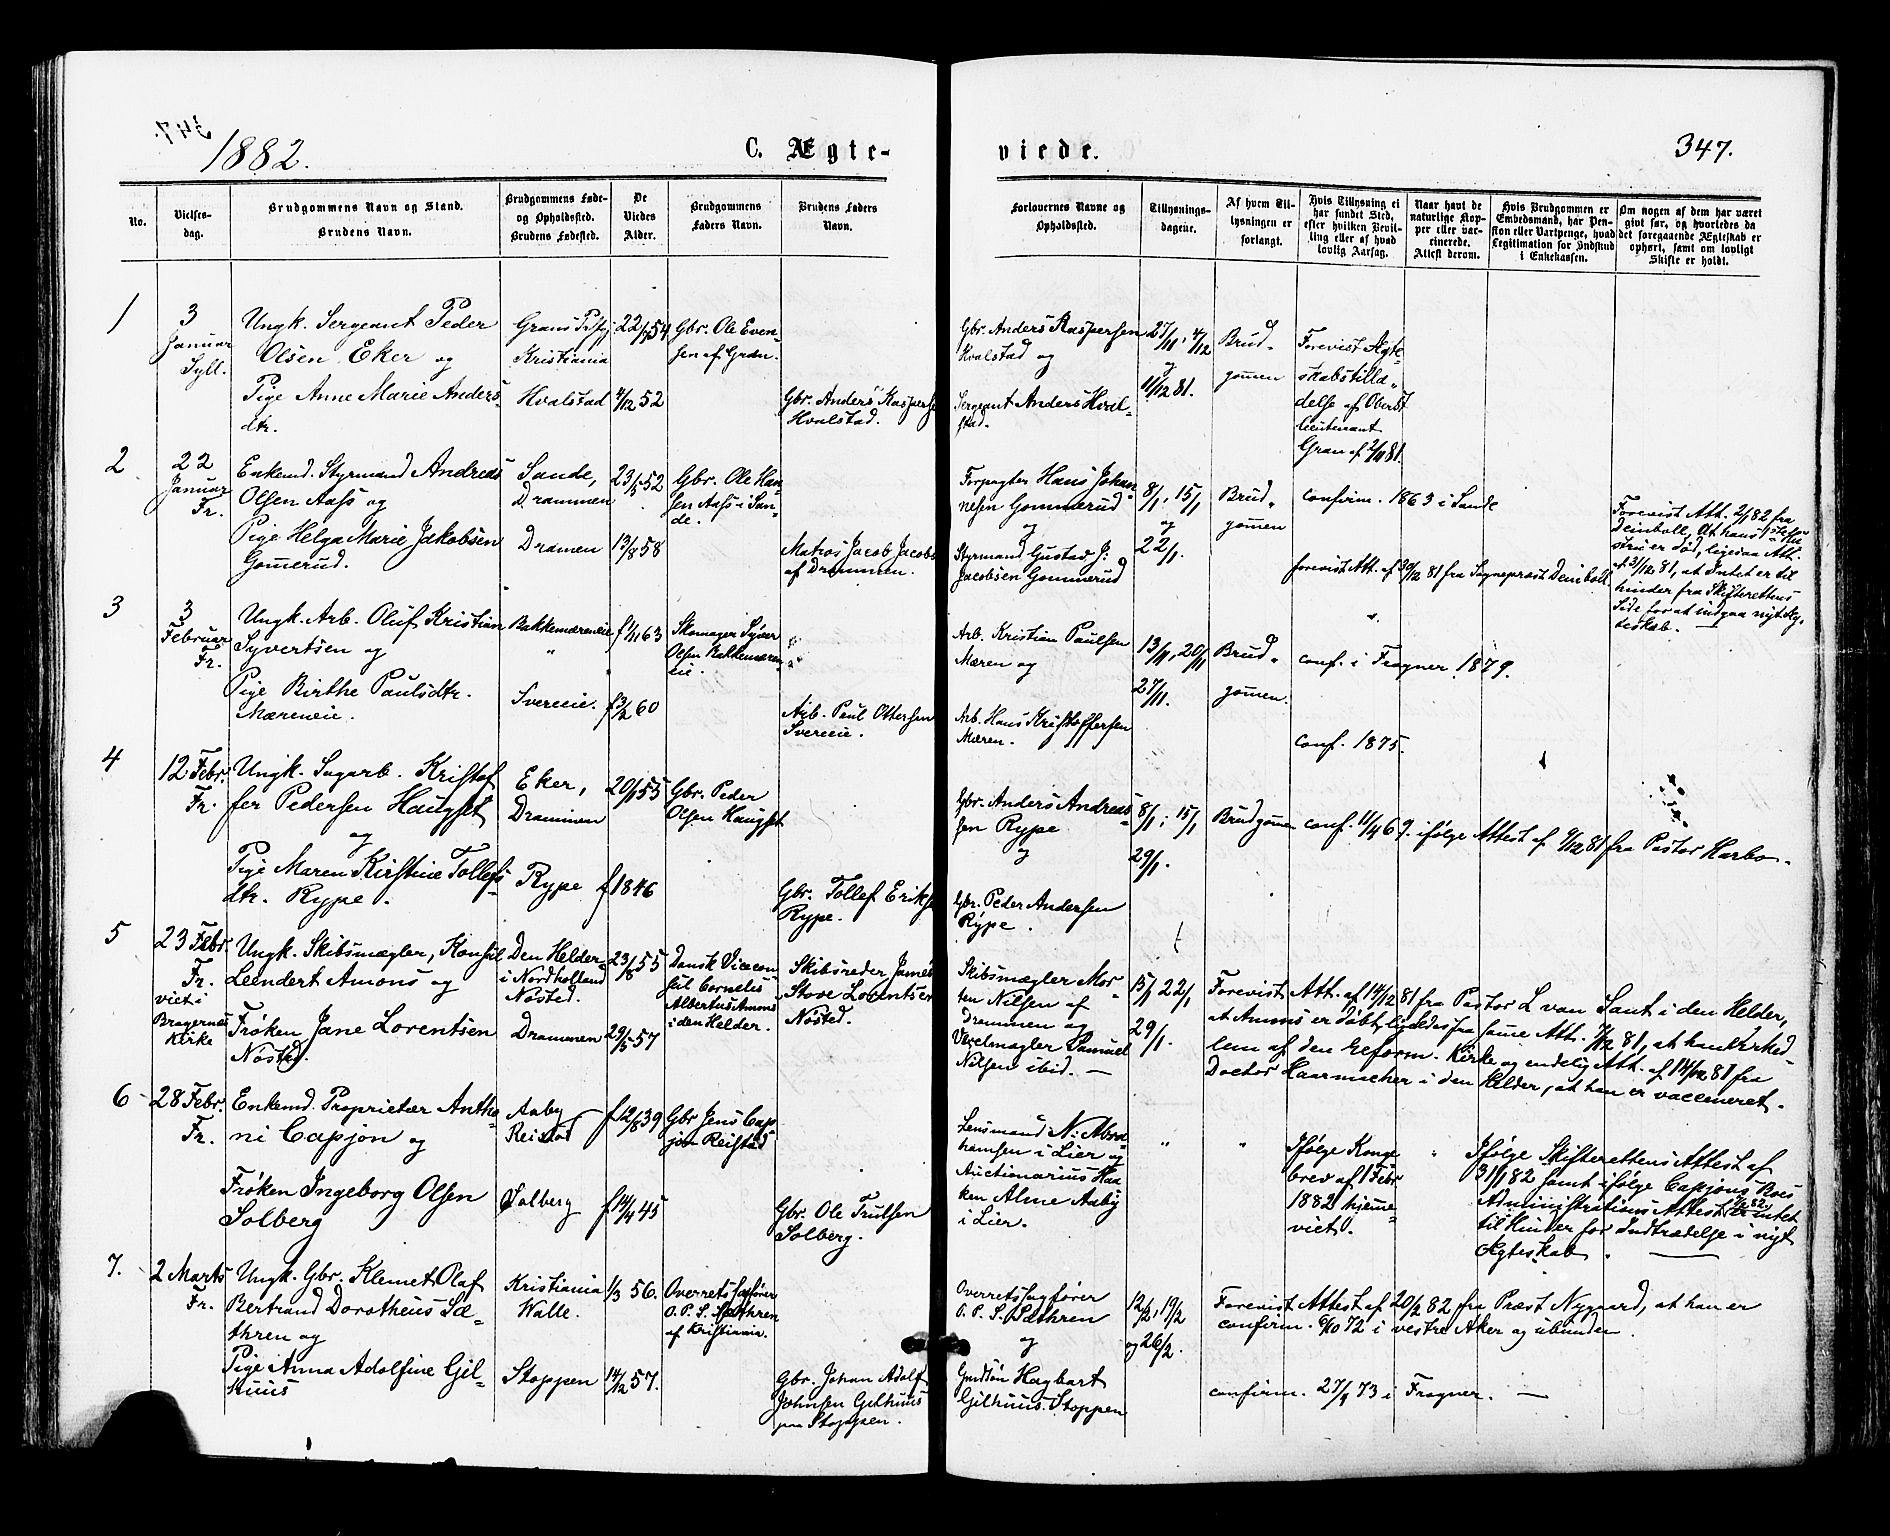 1882.
C. Ægte-
viede.
347.
No.
Vielses-
dag.
Brudgommens Navn og Stand.
Brudens Navn.
Brudgommens Føde-
og Opholdssted.
Brudens Fødested.
De
Viedes
Alder.
Brudgommens
Faders Navn.
Brudens Faders
Navn.
Forlovernes Navne og
Opholdssted.
Tillysnings-
dagene.
Af hvem Til-
lysningen er
forlangt.
Hvis Tillysning ei
har fundet Sted,
efter hvilken Bevil-
ling eller af hvad
lovlig Aarsag.
Naar havt de
naturlige Kop-
per eller vac-
cinerede.
Attest derom.
Hvis Brudgommen er
Embedsmand, har Pen-
sion eller Vartpenge, hvad
Legitimation for Indskud
i Enkekassen.
Om nogen af dem har været
givt før, og hvorledes da
det foregaaende Ægteskab er
ophørt, samt om lovligt
Skifte er holdt.
1
3
Januar
Syll.
Ungk. Sergeant Peder
Olsen Eker og
Pige Anne Marie Anders-
dtr.
Grans
Kristiania
Hvalstad
Gbr. Ole Even-
sen af Gran.
Gbr. Anders Kaspers
Hvalstad.
Gbr. Anders Kaspersen
Hvalstad og
Sergeant Anders Hval-
stad.
27/11, 4/12
og
11/12 81.
Brud-
gomen
Forevist Ægte-
skabstilla-
delse af Oberst
lieutenant
Gran af 2/11 81.
2
22
Januar
Fr.
Enkemd. Styrmand Andreas
Olsen Aass og
Pige Helga Marie Jakobsen
Gomerud.
Sande,
Drammen
Dramen
23/5 52
13/8 58
Gbr. Ole Han-
sen Aass i San-
de.
Matros Jacob Jacobs
af Drammen.
Forpagter Hans Johan-
nesen Gommerud
og
Styrmand Gustav J:
Jacobsen Gommerud
8/1, 15/1
og
22/1.
Brud-
gomen
confirm. 1863 i Sande
forevist Att. af 30/12 81 fra Sogneprest Deinboll
Forevist Att. 2/1 82 fra
Deinboll, at hans 1ste Hu
stru er død, ligesaa Att.
af 31/12 81, at Intet er til
hinder fra Skifterettens
Side for at indgaa nyt Æg-
teskab.
3
3
Februar
Fr.
Ungk. Arb. Oluf Kristian
Syvertsen og
Pige Birthe Paulsdtr.
Mæreneie.
Bakkemæreneie
"
Svereeie.
f 1/11 63
f 3/2 60
Skomager Syver
Olsen Bakkemæren-
eie.
Arb. Paul Ottersen
Svereeie.
Arb. Kristian Paulsen
Mæren og
Arb. Hans Kristoffersen
Mæren.
13/11, 20/11
27/11.
Brud-
gomen.
conf. i Fragner 1879.
conf. 1875.
4
12 Febr.
Fr.
Ungk. Sagarb. Kristof
fer Pedersen Haugset
og
Pige Maren Kirstine Tollefs-
dtr. Rype.
Eker,
Drammen
Rype
20/1 55
f 1846
Gbr. Peder
Olsen Haugset
Gbr. Tollef Eriks
Rype.
Gbr. Anders Andreas-
sen Rype
og
Gbr. Peder Andersen
Rype.
8/1; 15/1
29/1.
Brudgomen
conf. 11/4 69. ifølge Attest af 9/12 81 fra Pastor Harbo.
5
23 Febr.
Fr.
viet i
Bragernes
Kirke
Ungk. Skibsmægler, Konsul
Leendert Amons og
Frøken Jane Lorentsen
Nøsted.
Den Helder-
i Nordholland
Nøsted.
Drammen
23/8 55
29/5 57
Dansk Vicecon-
sul Cornelis
Albertus Amons
i den Helder.
Skibsreder James
Stove Lorentsen
Nøsted.
Skibsmægler Mor-
ten Nilsen af
Drammen og
Vexelmægler Samuel
Nilsen ibid. —
15/1 22/1
29/1.
Forevist Att. af 14/12 81 fra Pastor L van Sant i den Helder,
at Amons er døbt, ligeledes fra samme Att. 7/12 81, at han er Med-
lem af den reform. Kirke og endelig Att. af 14/12 81 fra
Doctor Haarmscher i den Helder, at han er vaccineret.
6
28 Febr.
Fr.
Enkemd. Proprietær Antho-
ni Capjon og
Frøken Ingeborg Olsen
Solberg
Aaby —
Reistad
Solberg
f 12/8 39
f 14/4 45
Gbr Jens Cap
jon Reistad
Gbr. Ole Trulsen
Solberg.
Lensmand N: Abra-
hamsen i Lier og
Auctionarius Haa-
ken Alme Aaby
i Lier.
"
"
Ifølge Konge
brev af 1 Febr
1882 hjemme-
viet.
"
Ifølge Skifterettens Attest af
31/1 82 samt ifølge Capjons Boes
Administrations Attest er intet
til Hinder for Indtrædelse i nyt
Ægteskab.
7.
2 Marts
Fr.
Ungk. Gbr. Klemet Olaf
Bertrand Dorotheus Sæ-
thren og
Pige Anna Adolfine Gil-
huus
Kristiania
Walle.
Stoppen
1/3 56.
14/12 57.
Overretssagfører
O. P. S. Sæthren
af Kristiania.
Gbr. Johan Adolf
Johnsen Gilhuus
paa Stoppen.
Overretssagfører
O. P. S. Sæthren
og
Hagbart
Gilhuus Stoppen
12/2, 19/2
og 26/2.
Forevist Attest af 20/2 82 fra Præst Nygaard, at han er
confirm. 6/10 72 i vestre Aker og ubunden.
confirm. 27/4 73 i Fragner. —